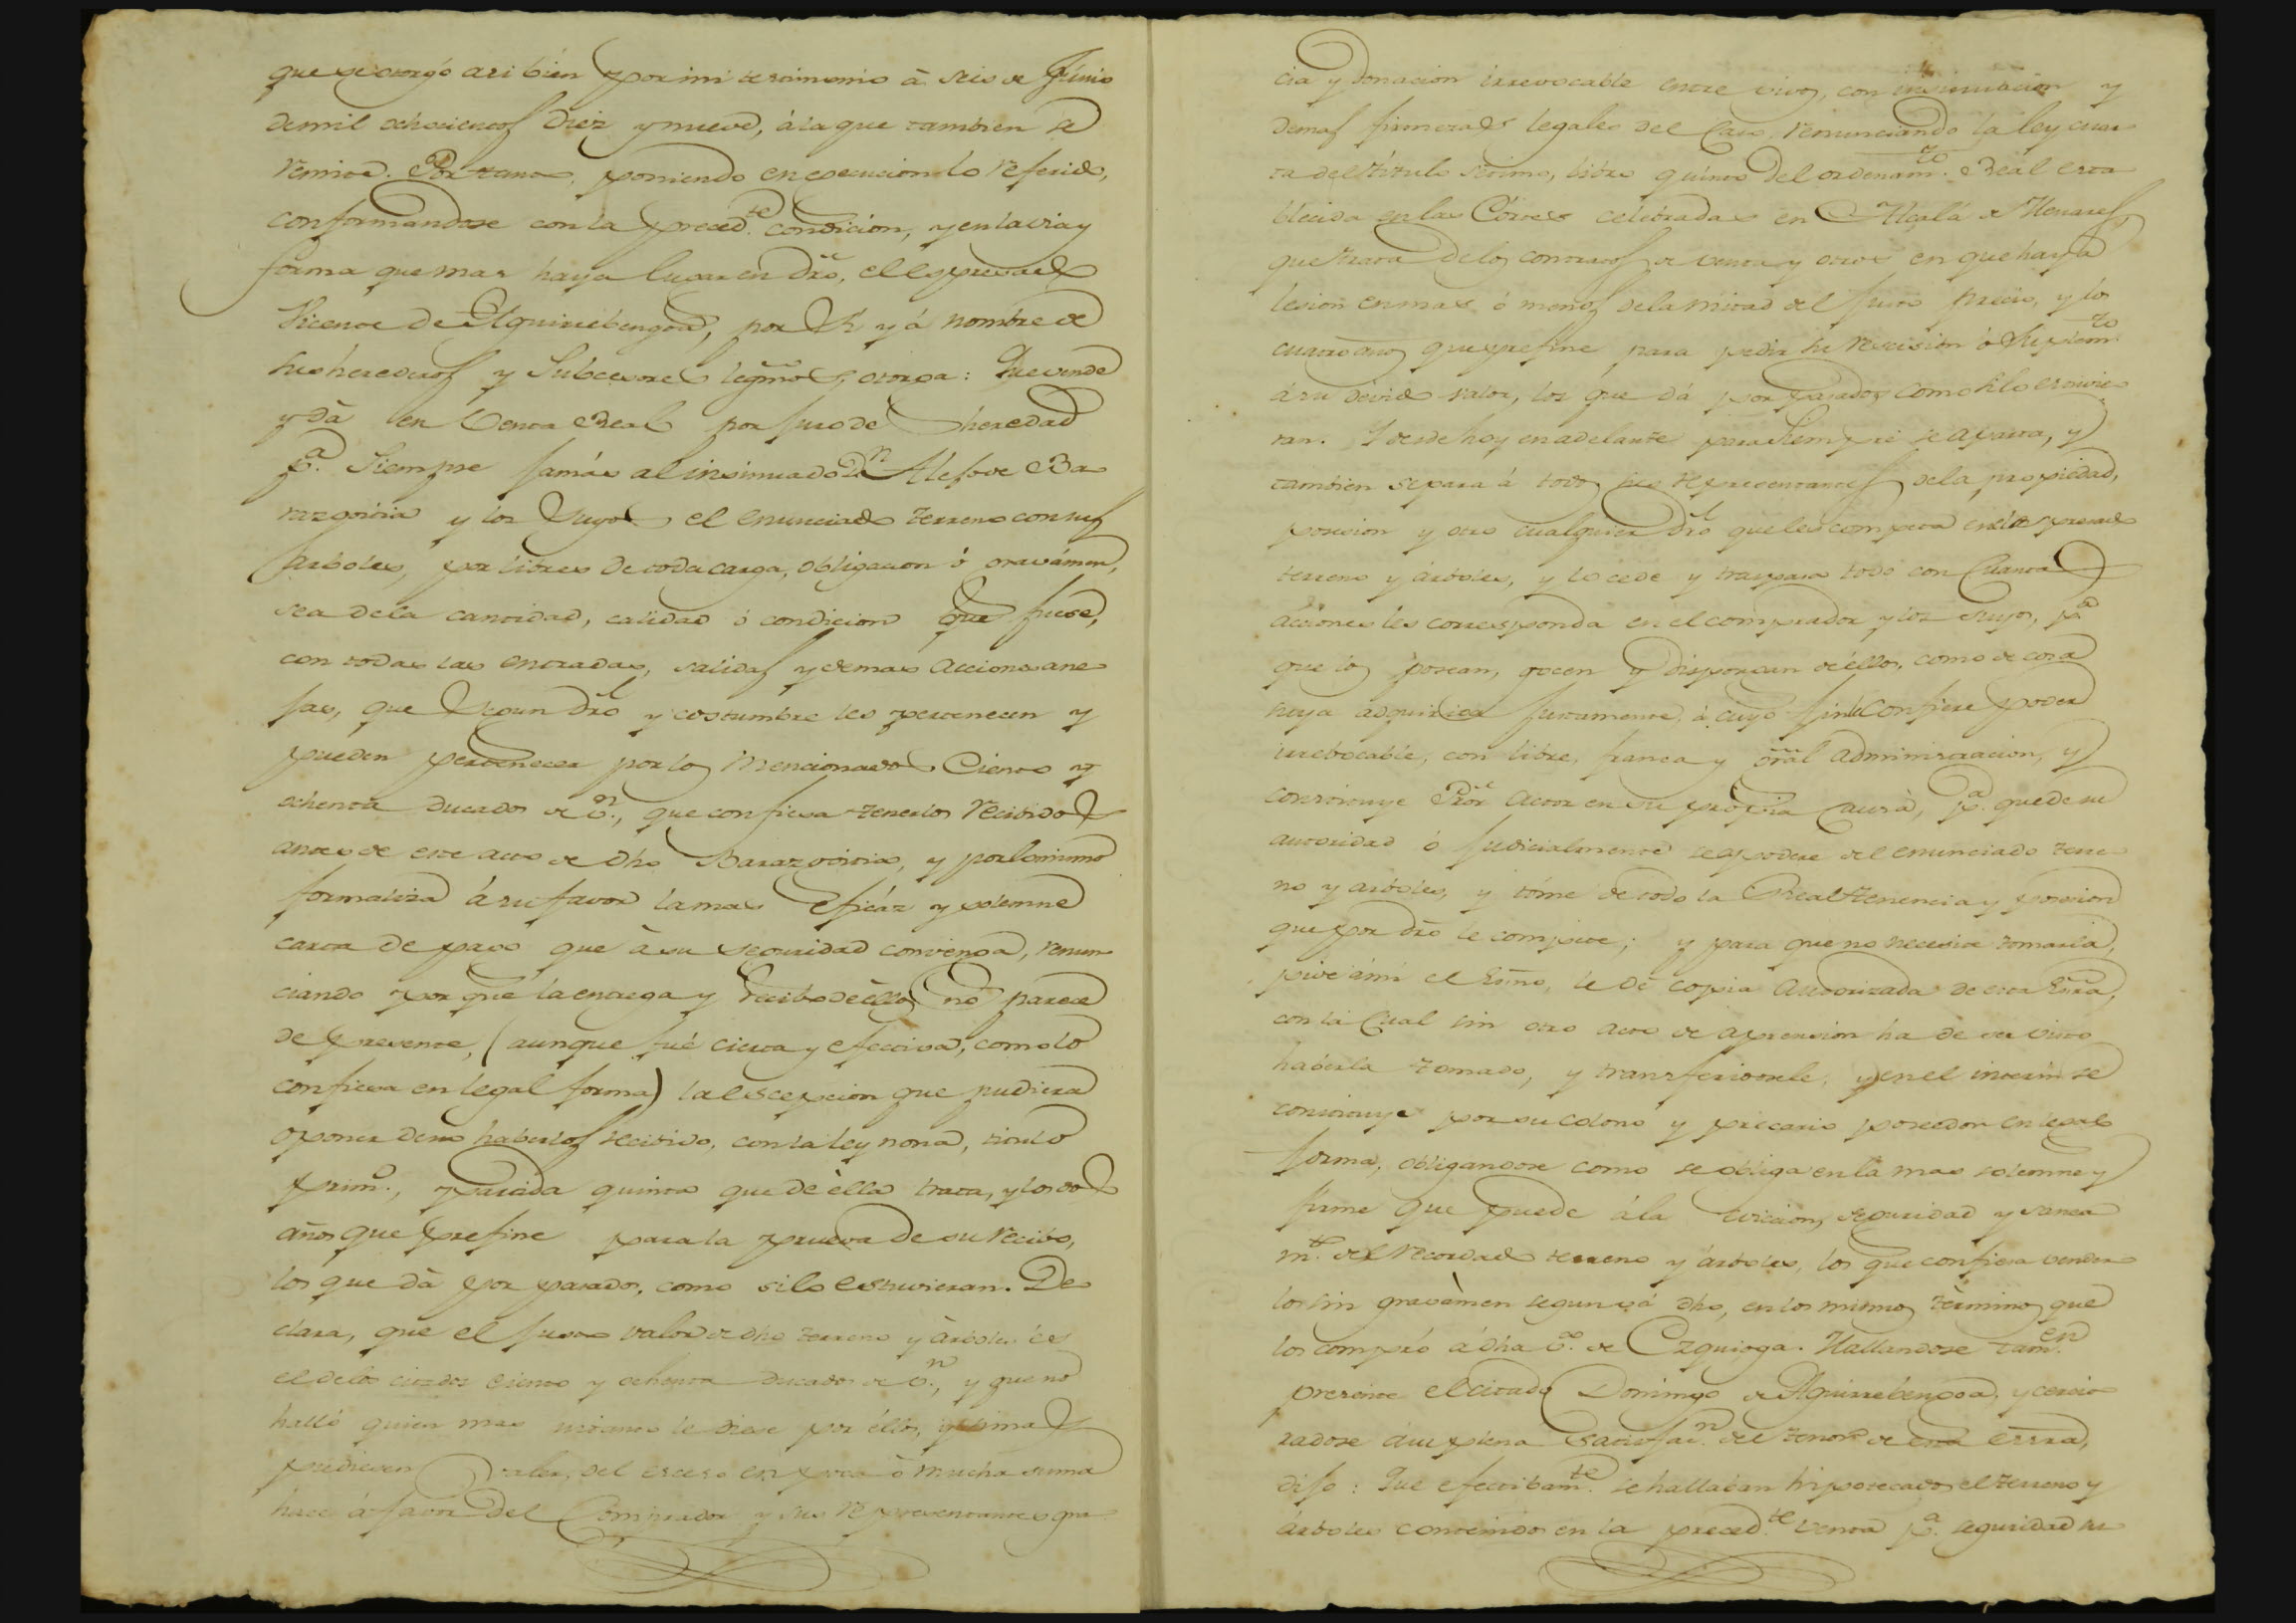 que se otorgó asi bien por mi testimonio á seis de Junio
de mil ochocientos diez y nueve, á la que tambien se
remite. Por tanto, poniendo en execucion lo referido,
conformandose con la preced.te condicion, y en la via y
forma que mas haya lugar en dro, el espresado
Vicente de Aguirrebengoa, por sí y á nombre de
sus herederos y Subcesores legmos, otorga: Que vende
y dá en Venta Real por juro de heredad
p.a Siempre jamás al insinuado Dn Alefo de Ba
razgoitia y los suyos el enunciado terreno con sus
arboles, por libres de toda carga, obligacion ó gravámen,
sea de la cantidad, calidad ó condicion que fuese,
con todas las entradas, salidas y demas acciones ane
jas, que segun dro y costumbre les pertenecen y
pueden pertenecer por los mencionados Ciento y
ochenta ducados de v.n, que confiesa tenerlos recibidos
antes de este acto de dho Barazgoitia, y por lo mismo
formaliza á su favor la mas eficáz y solemne
carta de pago que á su seguridad convenga, renun
ciando por que la entrega y recibo de éllos no parece
de presente, (aunque fué cierta y efectiva, como lo
confiesa en legal forma) la escepcion que pudiera
oponer de no haberlos recibido, con la ley nona, titulo
prim.o, partida quinta que de élla trata, y los dos
años que prefine para la prueva de su recibo,
los que dá por pasados, como si lo estuvieran. De
clara, que el justo valor de dho terreno y árboles es
el de los citados ciento y ochenta ducados de v.n, y que no
halló quien mas le diese por éllos, y si mas
pudiesen valer, del esceso en poca ó mucha suma
hace á favor del Comprador y sus representantes gra
cia y donacion irrevocable entre vivos, con insinuacion y
demas firmezas legales del Caso, renunciando la ley cuar
ta del título sétimo, libro quinto del ordenam.to Real esta
blecida en las Córtes celebradas en Alcalá de Henares,
que trata de los contratos de venta y otros en que haya
lesion en mas ó menos de la mitad del justo precio, y los
cuatro años que prefine para pedir su rescision ó Suplem.to
á su devido valor, los que dá por pasados como si lo estuvie
ran. Y desde hoy en adelante para Siempre se aparta, y
tambien separa á todos sus representantes de la propiedad,
posesion y otro cualquier dro que les competa en el espresado
terreno y árboles, y lo cede y traspasa todo con Cuantas
acciones les corresponda en el comprador y los suyos, p.a
que los posean, gocen y dispongan de éllos, como de cosa
suya adquirida justamente, á cuyo fin le Confiere poder
irrebocable, con libre, franca y gral administracion, y
constituye Pror actor en su propia Causa, p.a que de su
autoridad ó judicialmente se apodere del enunciado terre
no y arboles, y tóme de todo la Real tenencia y posesion
que por dro le compete; y para que no necesite tomarla,
pide á mi el Esno, le dé copia autorizada de esta Esra,
con la Cual sin otro acto de aprension ha de ser visto
haberla tomado, y transferidosele, y en el interin se
constituye por su colono y precario poseedor en legal
forma, obligandose como se obliga en la mas solemne y
firme que puede á la evicion, seguridad y sanea
m.to del recordado terreno y árboles, los que confiesa vender
los sin gravámen segun vá dho, en los mismos términos que
los compró á dha v.a de Ezquioga. Hallandose tam.en
presente el citado Domingo de Aguirrebengoa, y cercio
radose á su plena satisfac.n del tenor de esta Essra,
dijo: Que efectibam.te se hallaban hipotecados el terreno y
árboles contenidos en la preced.te venta p.a seguridad su